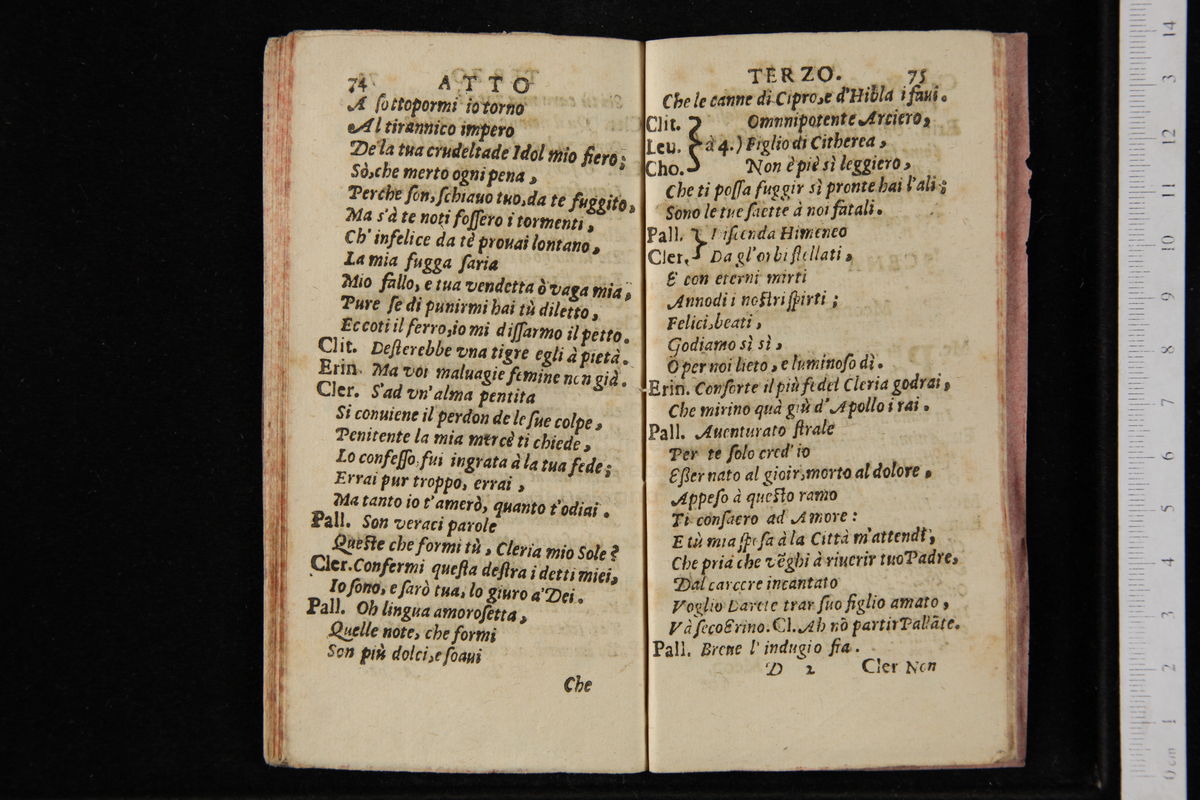 74 ATTO
A sottopormi io torno
Al tirannico impero
De la tua crudeltade Idol mio fiero;
Sò, che merto ogni pena,
Perche son, schiauo tuo, da te fuggito,
Ma s'à te noti fossero i tormenti,
Ch' infelice da tè prouai lontano,
La mia fugga saria
Mio fallo, e tua vendetta ò vaga mia,
Pure se di punirmi hai tù diletto,
Eccoti il ferro, io mi dissarmo il petto.
Clit. Desterebbe vna tigre egli à pietà.
Erin. Ma voi maluagie femine non già.
Cler. S'ad vn' alma pentita
Si conuiene il perdon de le sue colpe,
Penitente la mia mercè ti chiede,
Io confesso, fui ingrata à la tua fede;
Errai pur troppo, errai,
Ma tanto io t'amerò, quanto t'odiai.
Pall. Son veraci parole
Queste che formi tù, Cleria mio Sole?
Cler. Confermi questa destra i detti miei,
Io sono, e sarò tua, lo giuro a' Dei.
Pall. Oh lingua amorosetta,
Quelle note, che formi
Son più dolci, e soaui
Che
TERZO. 75
Che le canne di Cipro, e d'Hibla i faui.
Clit. Omnnipotente Arciero,
Leu. à 4.) Figlio di Citherea,
Cho. Non è piè sì leggiero,
Che ti possa fuggir sì pronte hai l'ali;
Sono le tue saette à noi fatali.
Pall. Discenda Himeneo
Cler. Da gl'orbi stellati,
E con eterni mirti
Annodi i nostri spirti;
Felici, beati,
Godiamo sì sì,
O per noi lieto, e luminoso dì.
Erin. Consorte il più fedel Cleria godrai,
Che mirino quà giù d'Apollo i rai.
Pall. Auenturato strale
Per te solo cred' io
Esser nato al gioir, morto al dolore,
Appeso à questo ramo
Ti consacro ad Amore:
E tù mia sposa à la Città m'attendi,
Che pria che vẽghi à riuerir tuo Padre,
Dal carcere incantato
Voglio Darete trar suo figlio amato,
Và seco Erino. Cl. Ah nõ partir Pallãte.
Pall. Breue l' indugio fia.
D 2 Cler Non